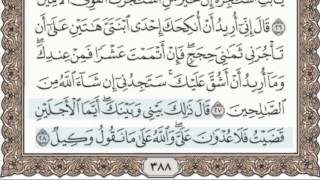 يَـٰٓأَبَتِ ٱسْتَـْٔجِرْهُ إِنَّ خَيْرَ مَنِ ٱسْتَـْٔجَرْتَ ٱلْقَوِىُّ ٱلْأَمِينُ ٢٦
قَالَ إِنِّىٓ أُرِيدُ أَنْ أُنكِحَكَ إِحْدَى ٱبْنَتَىَّ هَـٰتَيْنِ عَلَىٰٓ أَن
تَأْجُرَنِى ثَمَـٰنِىَ حِجَجٍ ۖ فَإِنْ أَتْمَمْتَ عَشْرًا فَمِنْ عِندِكَ ۖ
وَمَآ أُرِيدُ أَنْ أَشُقَّ عَلَيْكَ ۚ سَتَجِدُنِىٓ إِن شَآءَ ٱللَّهُ مِنَ
ٱلصَّـٰلِحِينَ ٢٧ قَالَ ذَٰلِكَ بَيْنِى وَبَيْنَكَ ۖ أَيَّمَا ٱلْأَجَلَيْنِ
قَضَيْتُ فَلَا عُدْوَٰنَ عَلَىَّ ۖ وَٱللَّهُ عَلَىٰ مَا نَقُولُ وَكِيلٌ ٢٨
٣٨٨